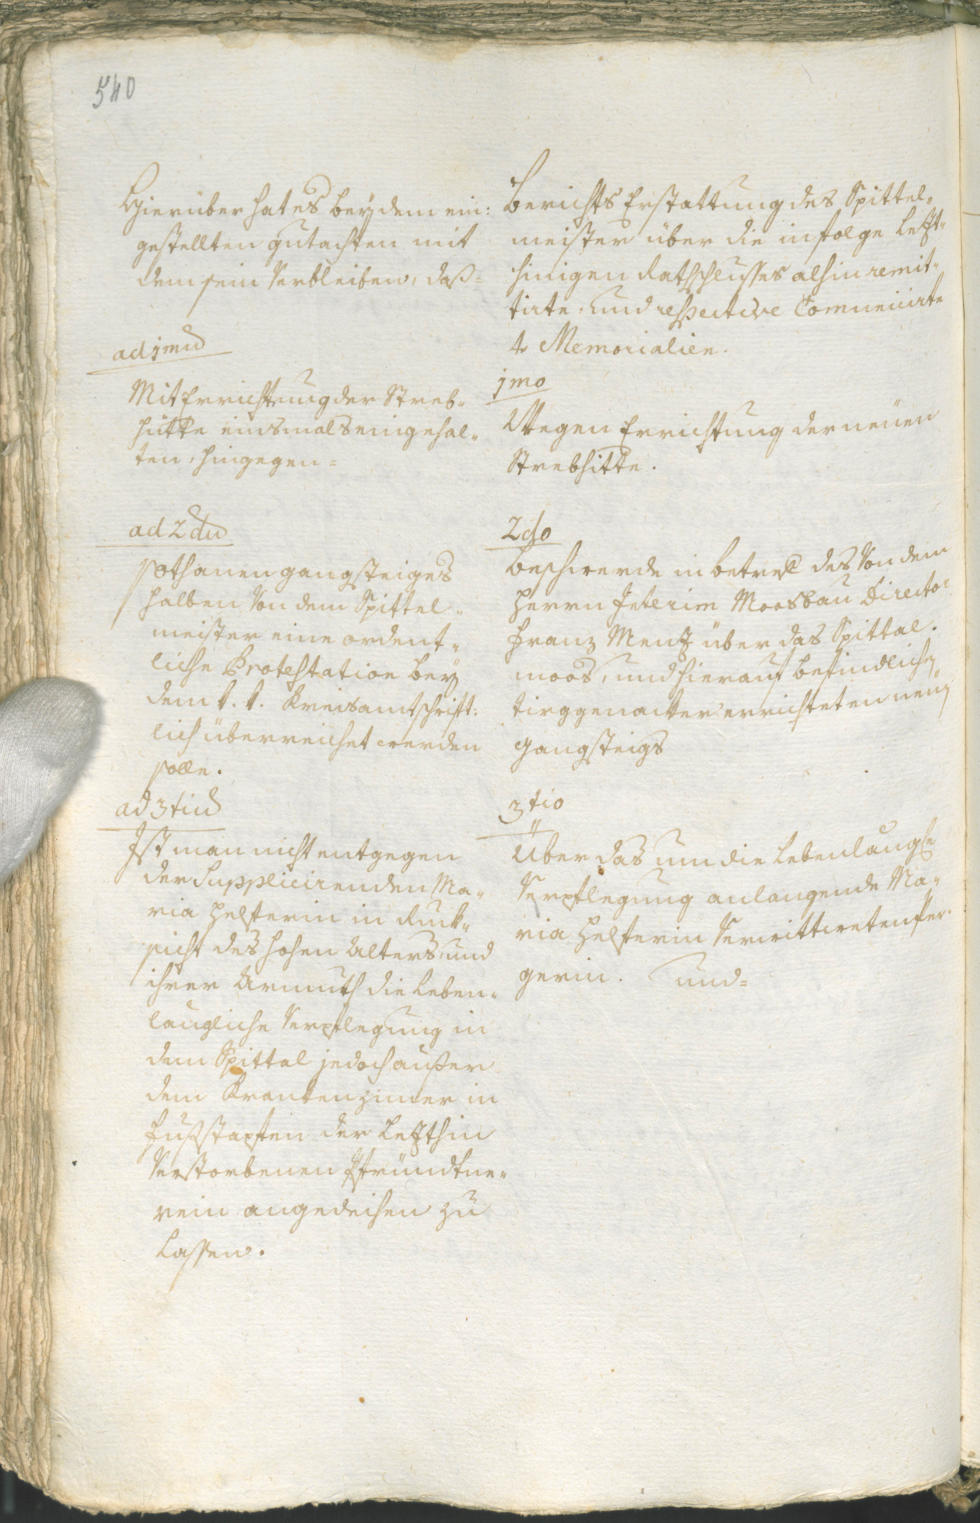 540
Hierüber hat es bey dem ein:
gestellten gutachten mit
dem sein Verbleiben, daß=
ad 1mu
Mit Errichtung der Streb-
hütte einsmals eingehal-
ten, hingegen=
ad 2du
sothanen gangsteiges
halben von dem Spittel-
meister eine ordent-
liche Protestation bey
dem k. k. Kreisamt schrift:
lich überreichet werden
solle.
ad 3tiu
Ist man nicht entgegen
der Supplicirenden Ma-
ria Helfferin in Ruck-
sicht des hohen Alters, und
ihrer Armuth die leben-
längliche Verpflegung in
dem Spittal jedoch außer
dem Krankenzimer in
fußstapfen der letzthin
Verstorbenen Pfründtne-
rein angedeihen zu
lassen.
Berichts Erstattung des Spittel-
meister über die in folge letzt-
hinigen Rathschlusses alhin remit-
tirte, und respective Comunicirte
4 Memorialien.
1mo
Wegen Errichtung der neüen
Strebhitte.
2do
Beschwerde in betref des von dem
Herrn Interim Moosbau Director
Franz Mentz über das Spittal-
moos, und hierauf befindlichen
tirggenacker errichteten neüen
gangsteigs
3tio
Über das um die lebenlängliche
Verpflegung anlangende Ma-
ria Helfferin Verwittwete
gerin. und=